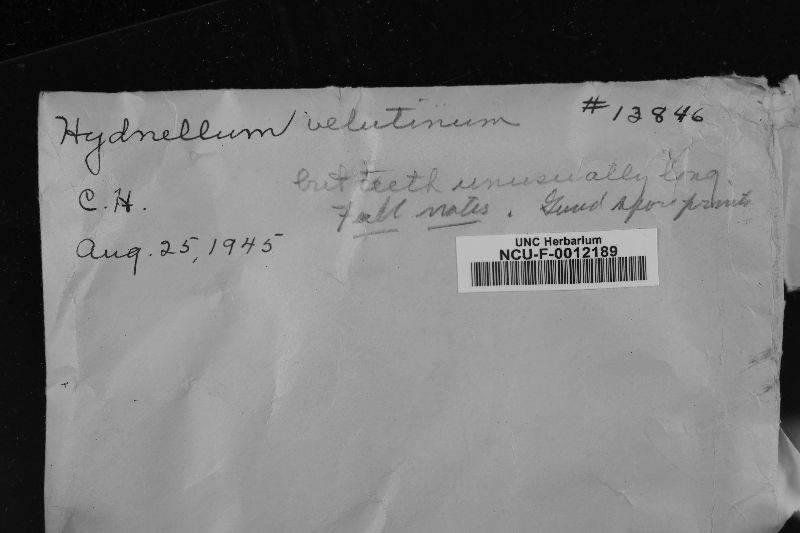 Hydnellum velutinum #13846
but teeth unusually long.
C.H.
Full notes. Good spore prints
Aug. 25, 1945
UNC Herbarium
NCU-F-0012189